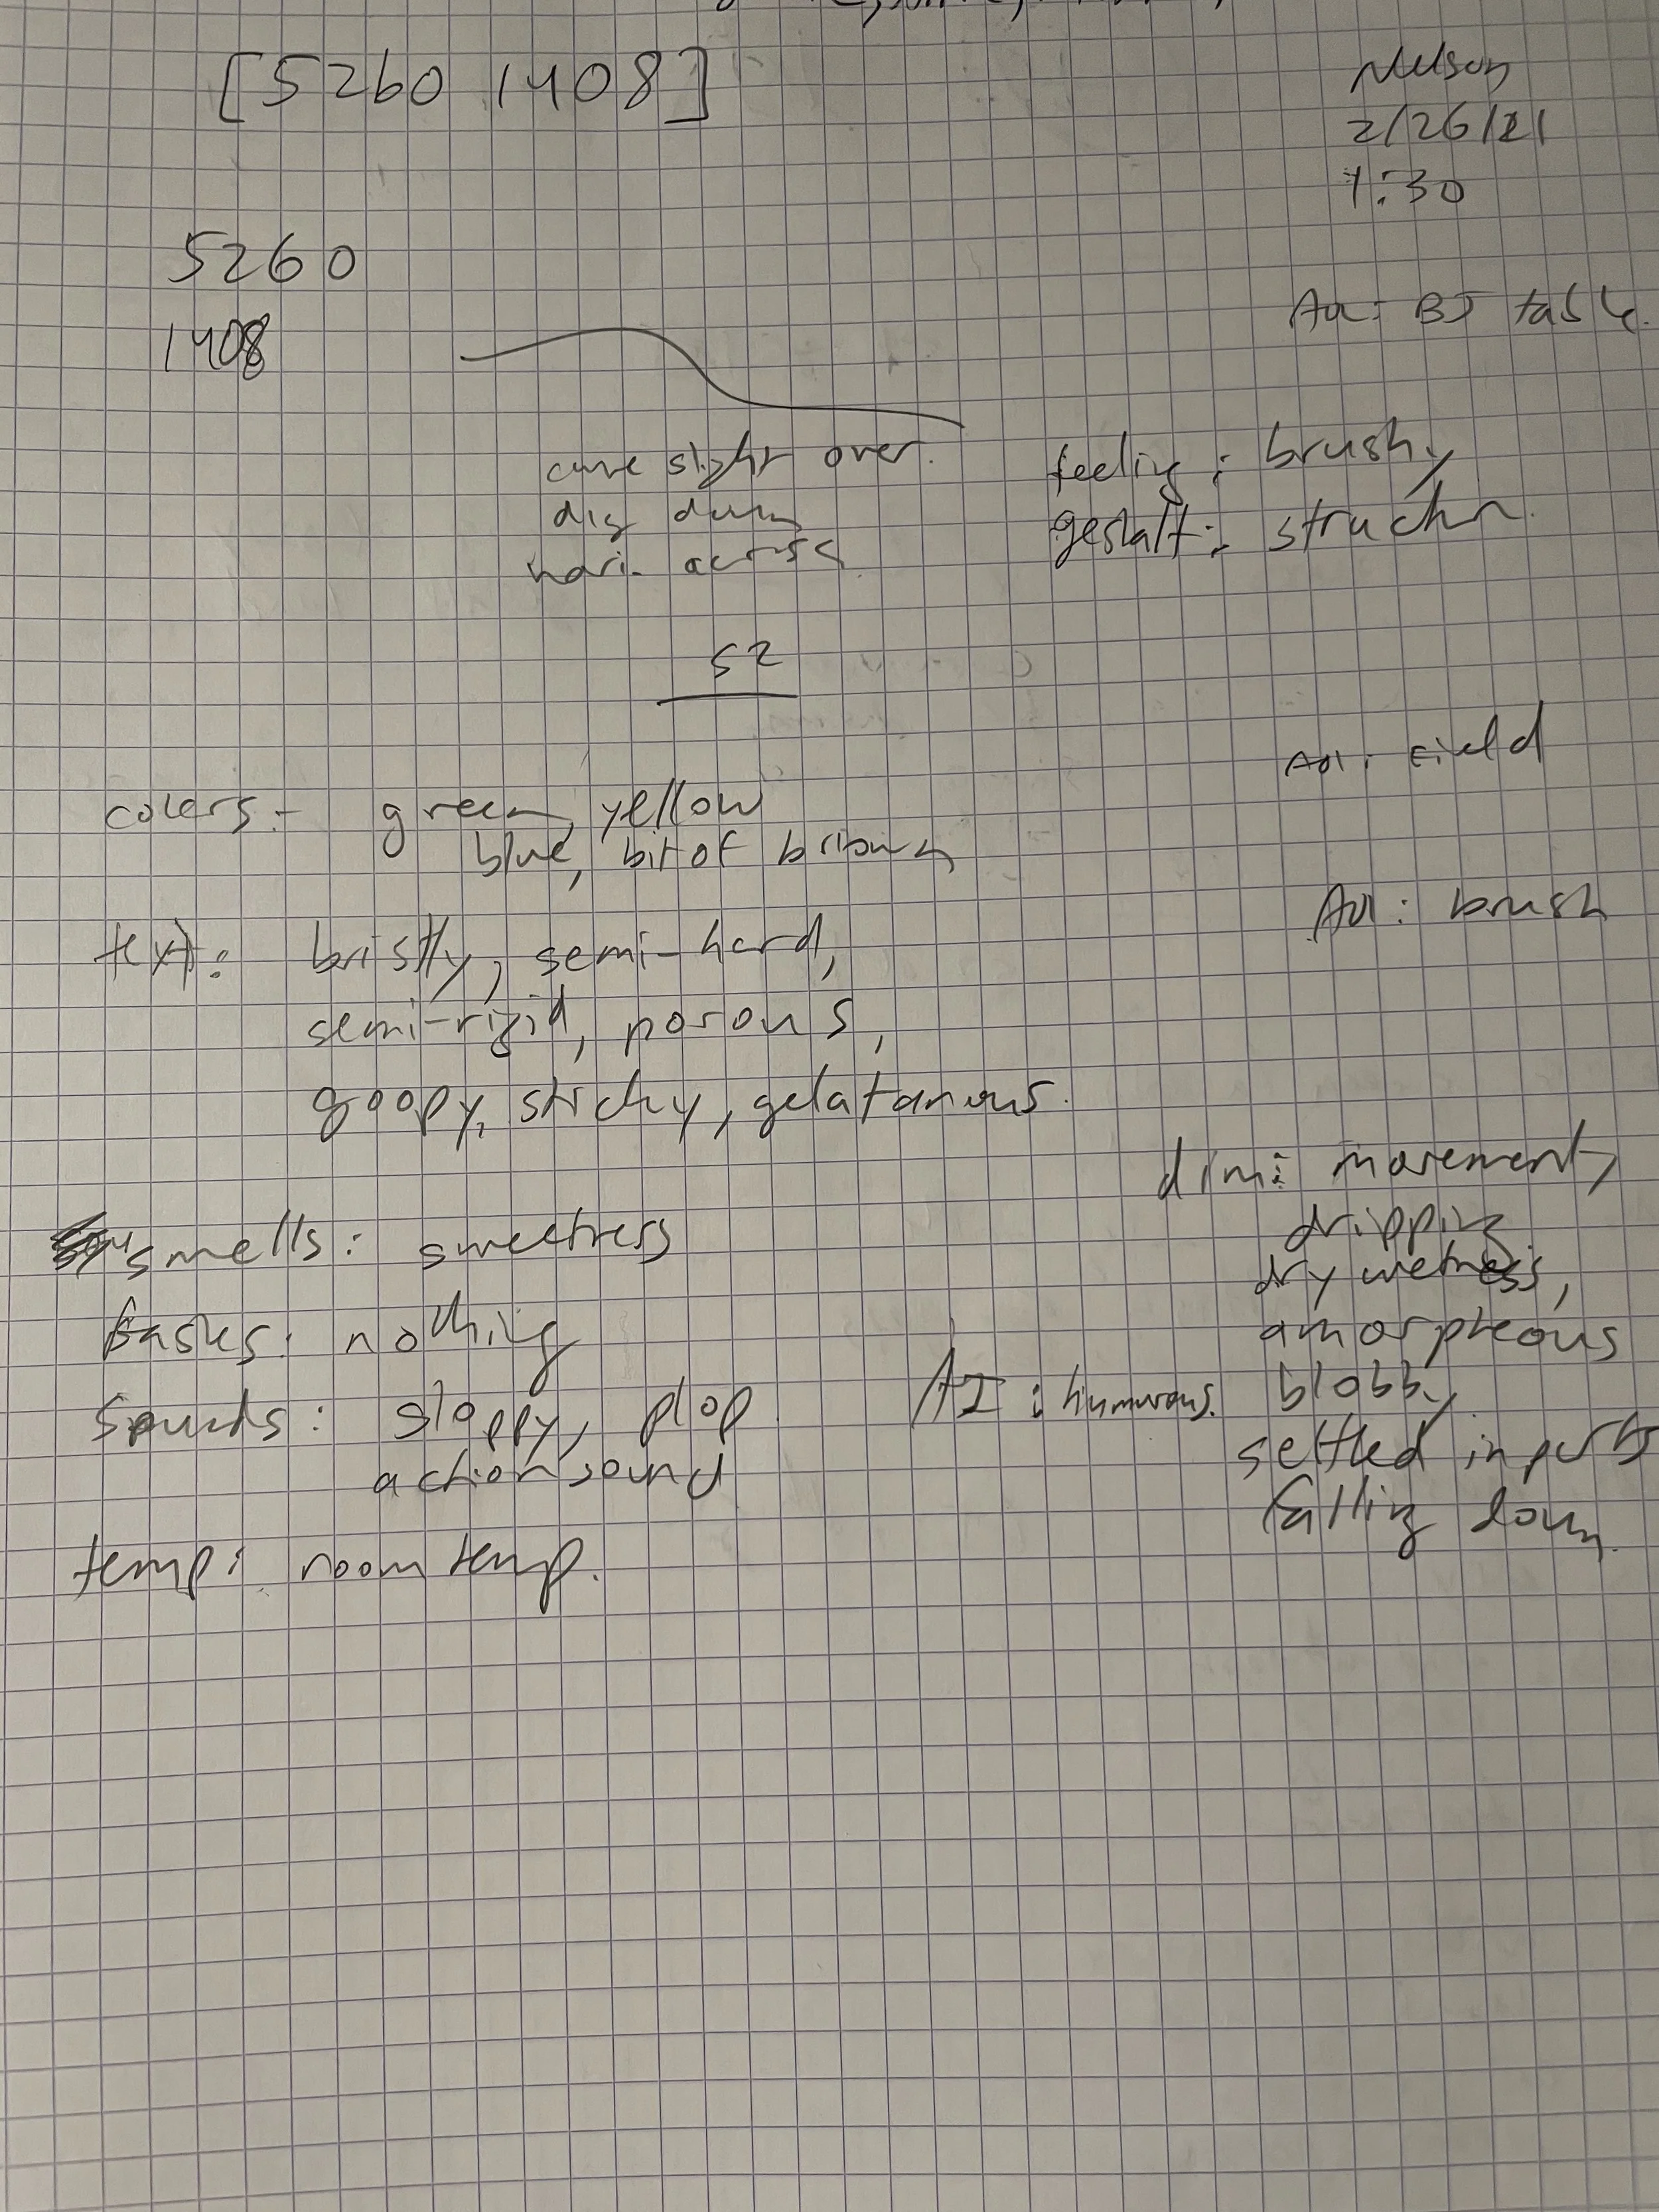 [5260 1408]
Nelson
2/26/21
1:30
5260
1408
AOL: BJ table.
curve slight over.
dig down
hori- across
feeling: brushy
gestalt: structur.
S2
AOL: Field
colors:- green, yellow
blue, bit of brown
AOL: brush
text: bristly, semi-hard,
semi-rigid, porous,
goopy, sticky, gelatanous.
smells: sweetness
tastes: nothing
sounds: sloppy, plop
action sound
temp: room temp.
dim: movement,
dripping
dry wetness,
amorpheous
blobby
settled in parts
falling down.
AI: humurous.